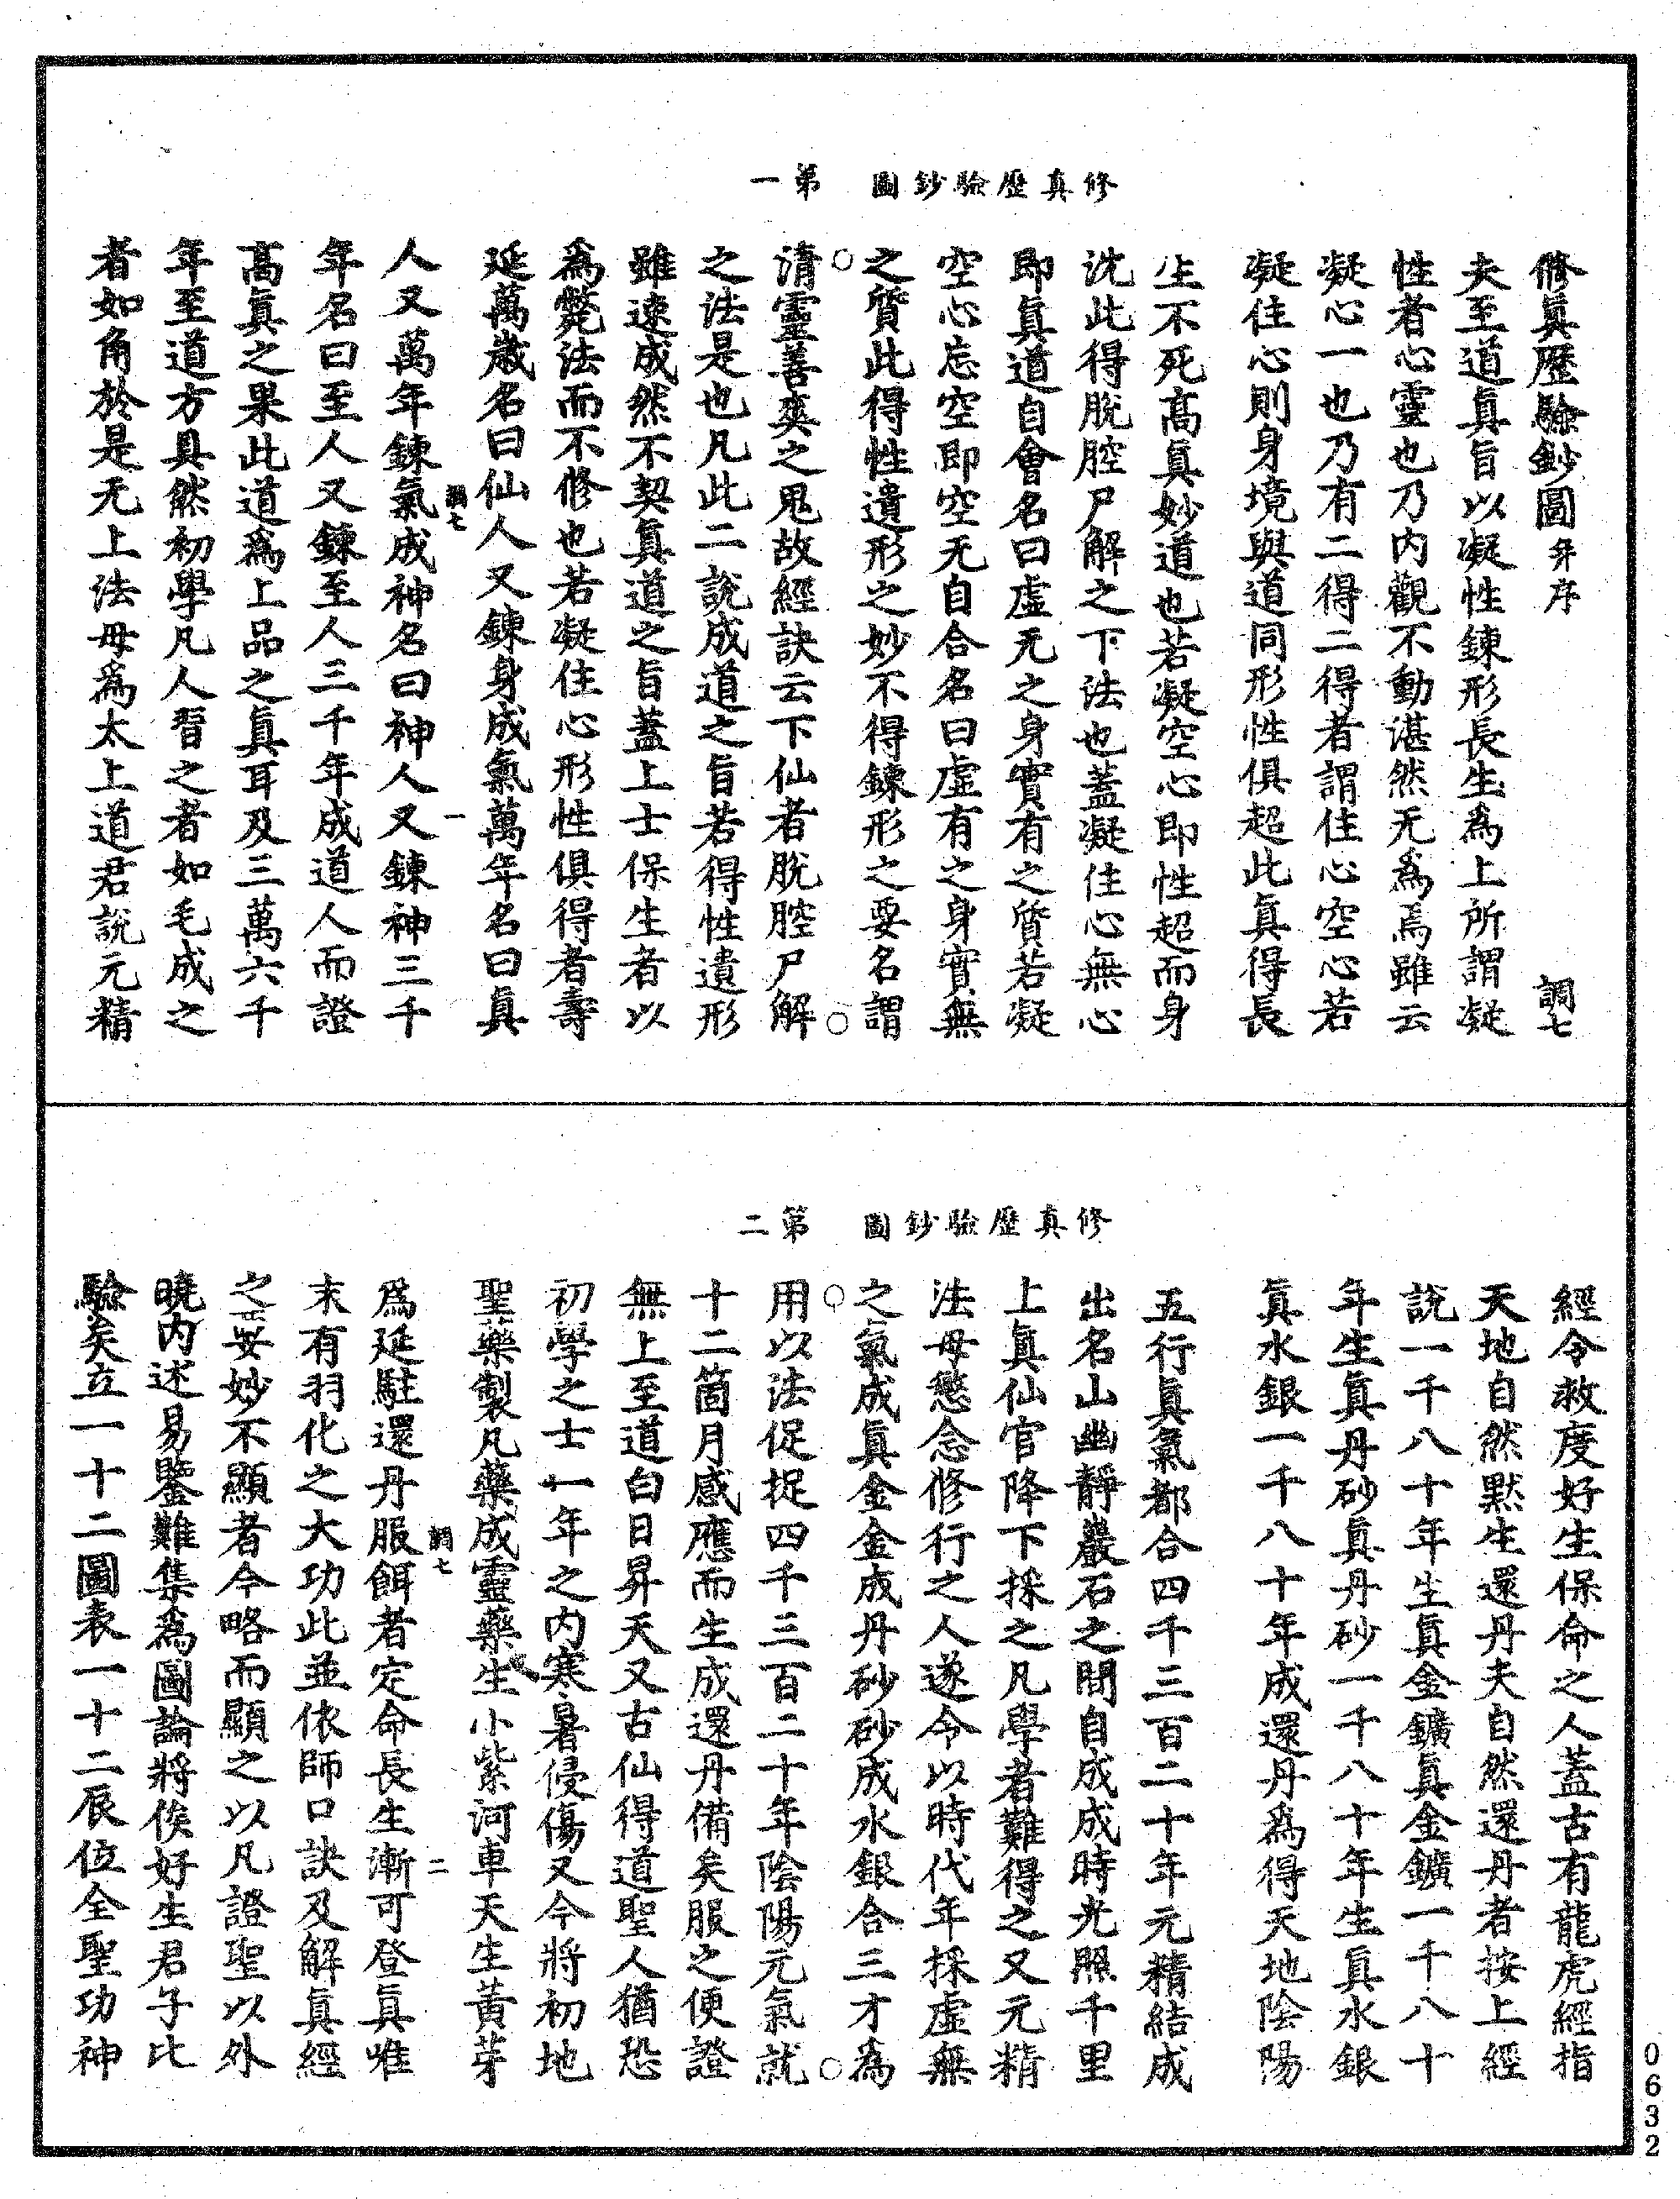 修真歷驗鈔圖　第一
修眞歷驗鈔圖并序　調七
夫至道眞旨以凝性鍊形長生爲上所謂凝
性者心靈也乃内觀不動湛然无爲焉雖云
凝心一也乃有二得二得者謂住心空心若
凝住心則身境與道同形性俱超此眞得長
生不死高眞妙道也若凝空心即性超而身
沈此得脫腔尸解之下法也蓋凝住心無心
即眞道自會名曰虛无之身實有之質若凝
空心忘空即空无自合名曰虛有之身實無
之質此得性遺形之妙不得鍊形之要名謂
清靈善爽之鬼故經訣云下仙者脫腔尸解
之法是也凡此二說成道之旨若得性遺形
雖速成然不契眞道之旨蓋上士保生者以
爲斃法而不修也若凝住心形性俱得者壽
延萬歲名曰仙人又鍊身成氣萬年名曰眞
調七　一
人又萬年鍊氣成神名曰神人又鍊神三千
年名曰至人又鍊至人三千年成道人而證
高眞之果此道爲上品之眞耳及三萬六千
年至道方具然初學凡人習之者如毛成之
者如角於是无上法母爲太上道君說元精
修真歷驗鈔圖　第二
經令救度好生保命之人蓋古有龍虎經指
天地自然默生還丹夫自然還丹者按上經
說一千八十年生眞金鑛眞金鑛一千八十
年生眞丹砂眞丹砂一千八十年生眞水銀
眞水銀一千八十年成還丹爲得天地陰陽
五行眞氣都合四千三百二十年元精結成
出名山幽靜巖石之間自成成時光照千里
上眞仙官降下採之凡學者難得之又元精
法母愍念修行之人遂令以時代年採虛無
之氣成眞金金成丹砂砂成水銀合三才爲
用以法促捉四千三百二十年陰陽元氣就
十二箇月感應而生成還丹備矣服之便證
無上至道白日昇天又古仙得道聖人猶恐
初學之士一年之内寒暑侵傷又今將初地
聖藥製凡藥成靈藥生小紫河車天生黃芽
調七　二
爲延駐還丹服餌者定命長生漸可登眞唯
末有羽化之大功此並依師口訣及解眞經
之要妙不顯者今略而顯之以凡證聖以外
曉内述易鑒難集爲圖論將俟好生君子比
驗矣立一十二圖表一十二辰位全聖功神
0632